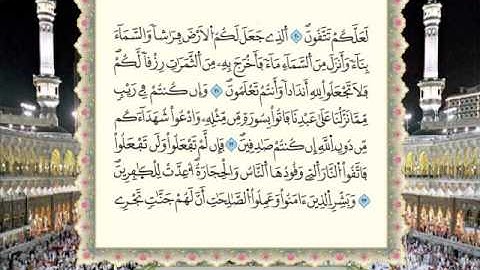 لَعَلَّكُمْ تَتَّقُونَۖ ٢٠ اَ۬لذِے جَعَلَ لَكُمُ اُ۬لَارْضَ فِرَٰشاٗ وَالسَّمَآءَ
بِنَآءٗ وَأَنزَلَ مِنَ اَ۬لسَّمَآءِ مَآءٗ فَأَخْرَجَ بِهِۦ مِنَ اَ۬لثَّمَرَٰتِ رِزْقاٗ لَّكُمْۖ
فَلَا تَجْعَلُواْ لِلهِ أَندَاداٗ وَأَنتُمْ تَعْلَمُونَۖ ٢١ وَإِن كُنتُمْ فِے رَيْبٖ
مِّمَّا نَزَّلْنَا عَلَىٰ عَبْدِنَا فَاتُواْ بِسُورَةٖ مِّن مِّثْلِهِۦ وَادْعُواْ شُهَدَآءَكُم
مِّن دُونِ اِ۬للَّهِ إِن كُنتُمْ صَٰدِقِينَۖ ٢٢ فَإِن لَّمْ تَفْعَلُواْ وَلَن تَفْعَلُواْ
فَاتَّقُواْ اُ۬لنَّارَ اَ۬لتِے وَقُودُهَا اَ۬لنَّاسُ وَالْحِجَارَةُۖ أُعِدَّتْ لِلْكٰ۪فِرِينَۖ
٢٣ وَبَشِّرِ اِ۬لذِينَ ءَامَنُواْ وَعَمِلُواْ اُ۬لصَّٰلِحَٰتِ أَنَّ لَهُمْ جَنَّٰتٖ تَجْرِے